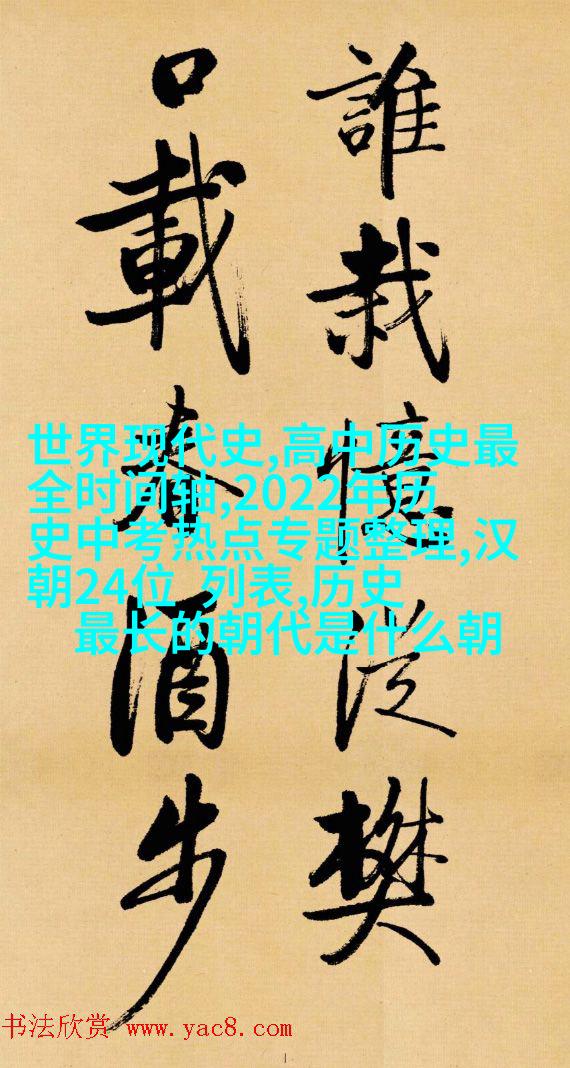 誰栽憶從樊
口載春酒步
世界现代史,高中历史最
全时间轴,2022年历
史中考热点专题整理,汉
朝24位 列表,历史
最长的朝代是什么朝
书法欣赏 www.yac8.com